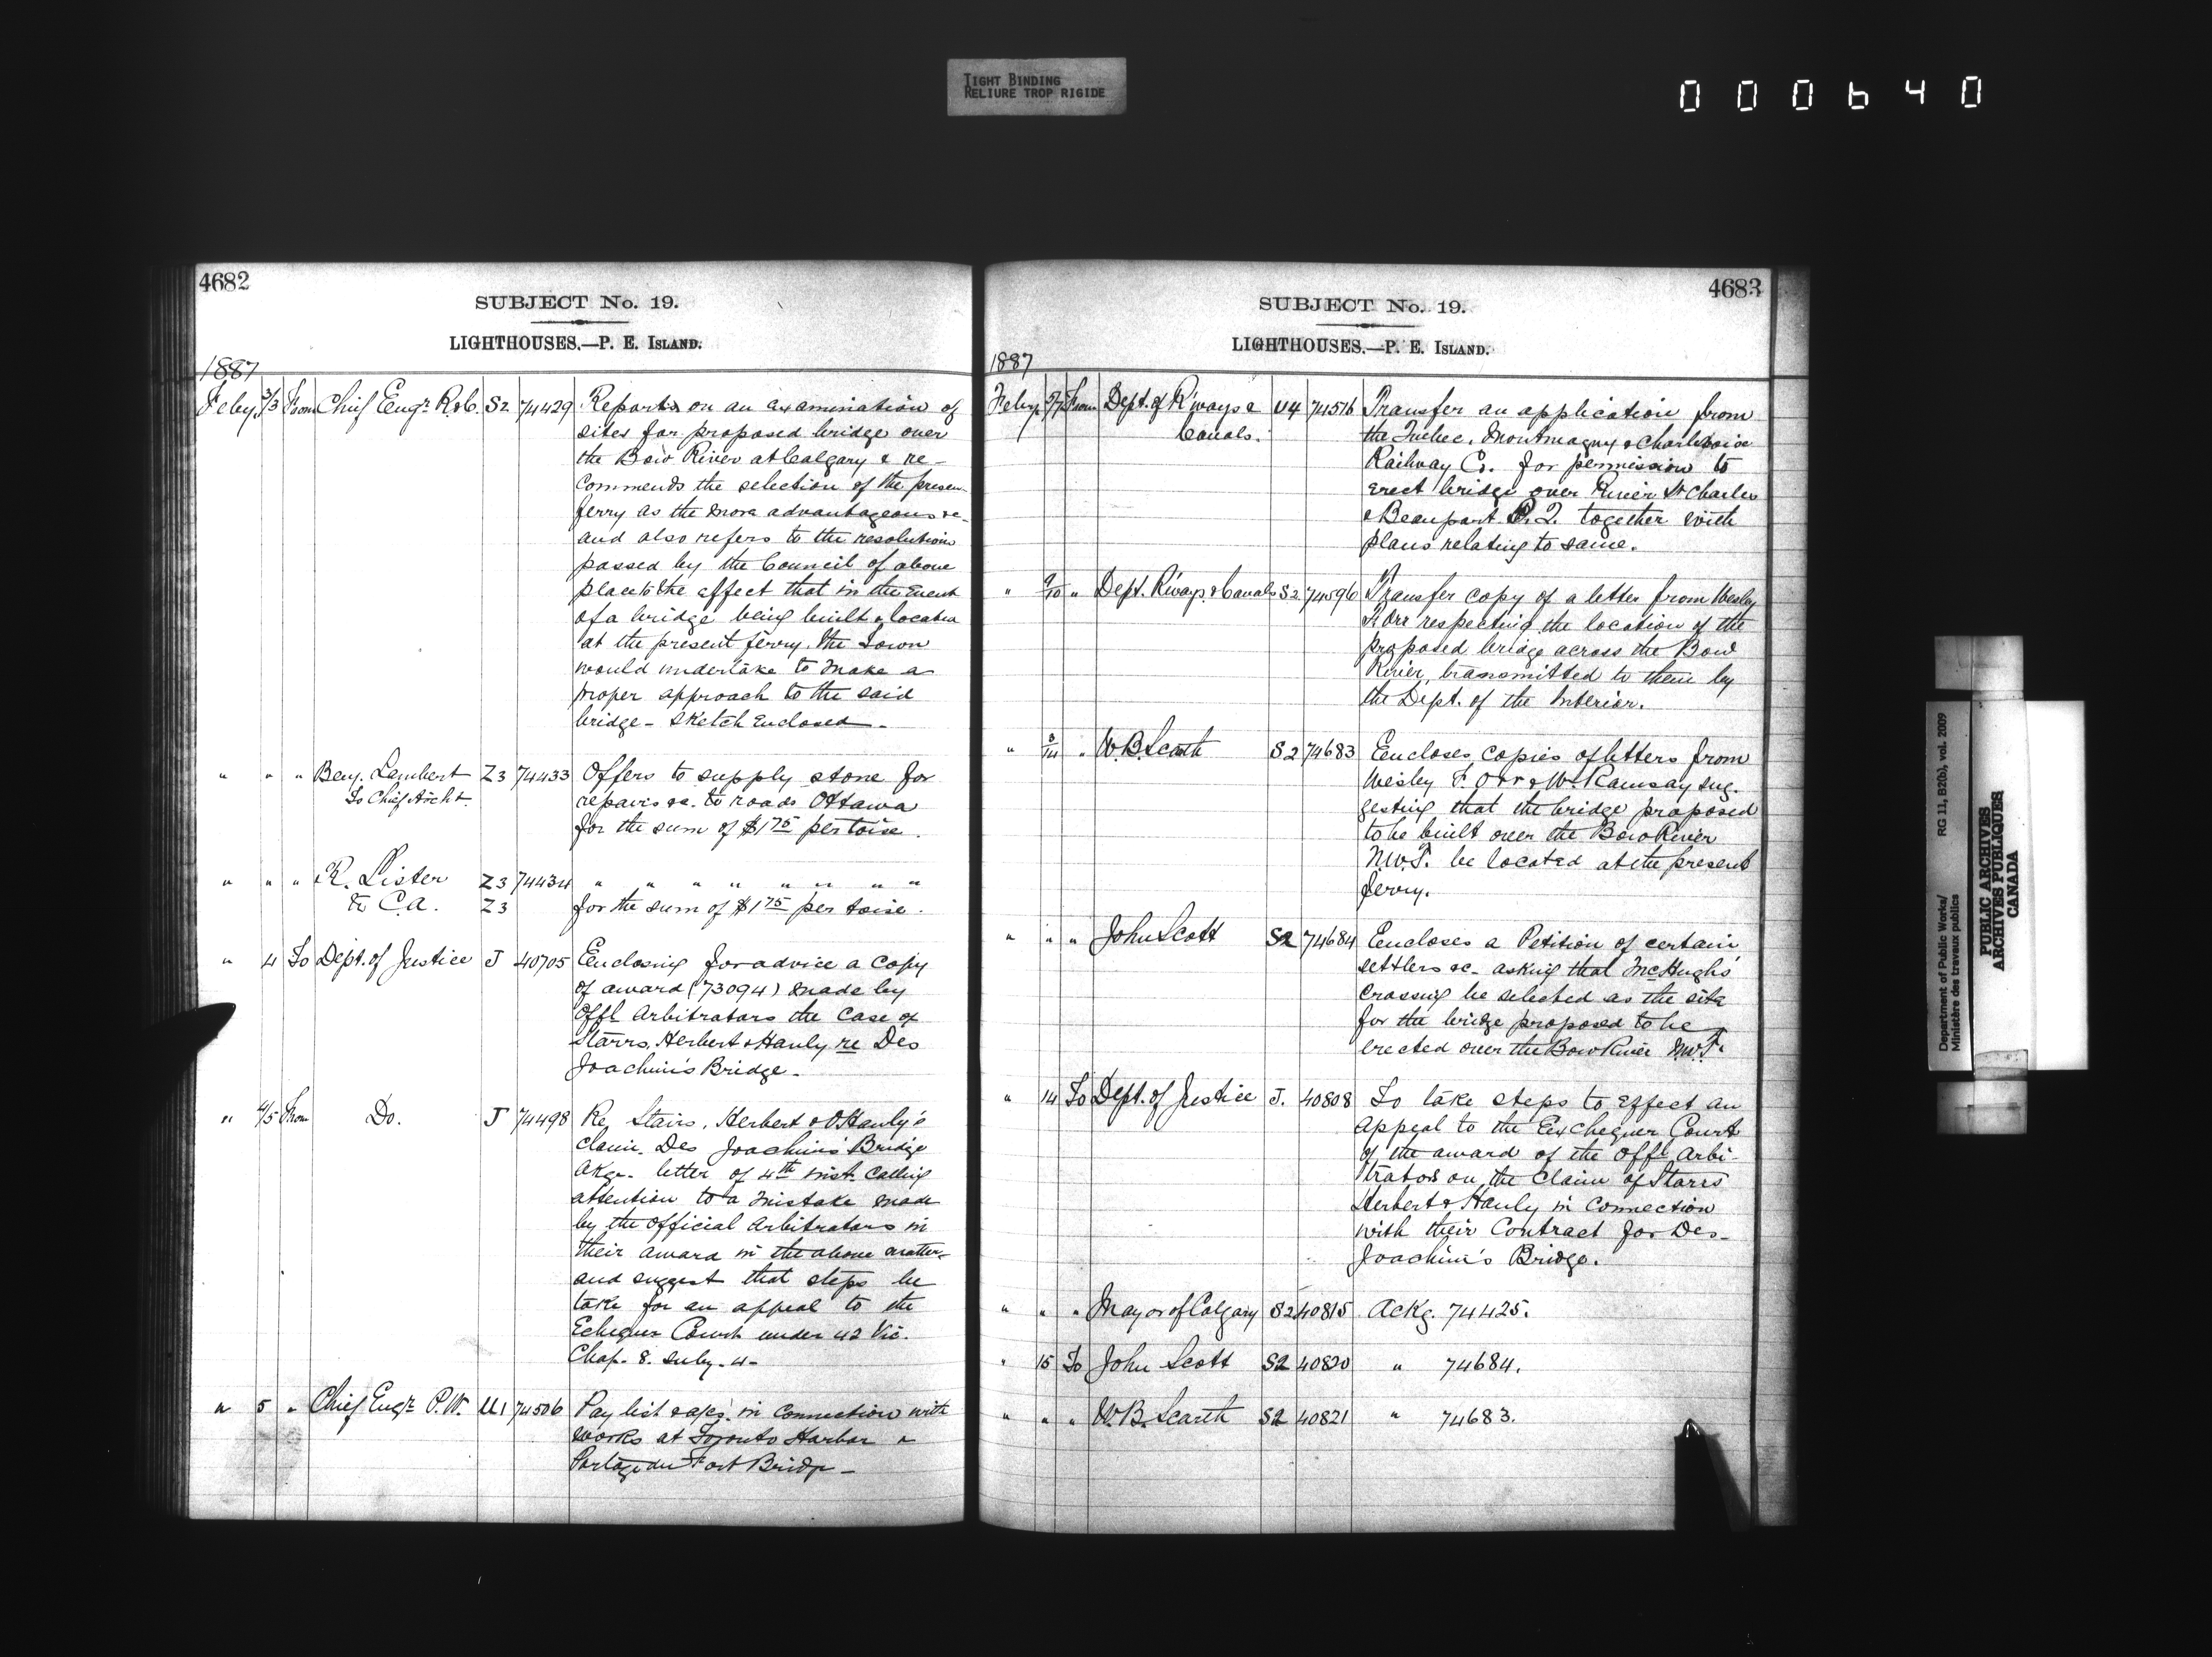 TIGHT BINDING
RELIURE TROP RIGIDE
000640
4682
SUBJECT No. 19.
LIGHTHOUSES.—P. E. ISLAND.
1887
Feby 3/3 From Chief Engr R&b. S2 74429 Reports on an examination of
sites for proposed bridge over
the Bow River at Calgary & re-
commends the selection of the presen
ferry as the more advantageous &c-
and also refers to the resolution
passed by the Council of above
place to the effect that in the event
of a bridge being built & located
at the present ferry, the Town
would undertake to make a
proper approach to the said
bridge - Sketch enclosed -
" " " Benj. Lambert Z3 74433 Offers to supply stone for
To Chief Archt. repairs &c. to roads Ottawa
for the sum of $1 75 per toise.
" " " R. Lister Z3 74434 " " " " " " " "
to C.A. Z3 for the sum of $1 75 per toise.
" 4 To Dept. of Justice J 40705 Enclosing for advice a copy
of award (73094) made by
Offl Arbitrators the case of
Starrs, Herbert & Hanly re Des
Joachim's Bridge -
" 4/5 From Do. J 74498 Re Stairs, Herbert & O'Hanly's
claim. Des Joachim's Bridge
Akge. letter of 4th inst. calling
attention to a mistake made
by the Official Arbitrators in
their award in the above matter-
and suggest that steps be
take for an appeal to the
Echequer Court under 42 Vic.
Chap. 8. 4-
" 5 " Chief Engr P.W. U1 74506 Pay list & a/cs. in connection with
works at Toronto Harbor &
Portage du Fort Bridge -
4683
SUBJECT No. 19.
LIGHTHOUSES.—P. E. ISLAND.
1887
Feby From Dept. of R'ways & U4 74516 Transfer an application from
Canals. the Quebec, Montmagny & Charlevoix
Railway Co. for permission to
erect bridge over River St Charles
& Beauport P.Q. together with
plans relating to same.
" 9/10 " Dept. R'ways & Canals S2 74596 Transfer copy of a letter from Wesley
F. Orr respecting the location of the
proposed bridge across the Bow
River, transmitted to them by
the Dept. of the Interior.
" 3/14 " W.B. Scarth S2 74683 Encloses copies of letters from
Wesley F. Orr & Wm Ramsay sug-
gesting that the bridge proposed
to be built over the Bow River
N.W.T. be located at the present
ferry.
" " " John Scott S2 74684 Encloses a Petition of certain
settlers &c- asking that McHugh's
Crossing be selected as the site
for the bridge proposed to be
erected over the Bow River N.W.T.
" 14 To Dept. of Justice J. 40808 To take steps to effect an
appeal to the Exchequer Court
of the award of the Offl Arbi-
trators on the claim of Starrs
Herbert & Hanly in connection
with their Contract for Des-
Joachim's Bridge.
" " " Mayor of Calgary S2 40815 Ackg. 74425.
" 15 To John Scott S2 40820 " 74684.
" " " W.B. Scarth S2 40821 " 74683.
Department of Public Works/ RG 11, B2(b), vol. 2009
Ministère des travaux publics
PUBLIC ARCHIVES
ARCHIVES PUBLIQUES
CANADA